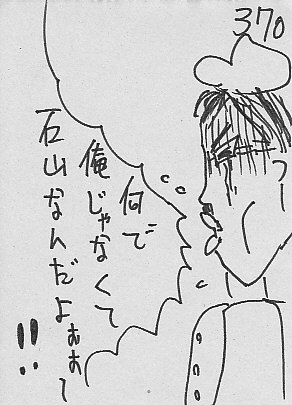 370
何で
俺じゃなくて
石山なんだよぉぉぉー
!!